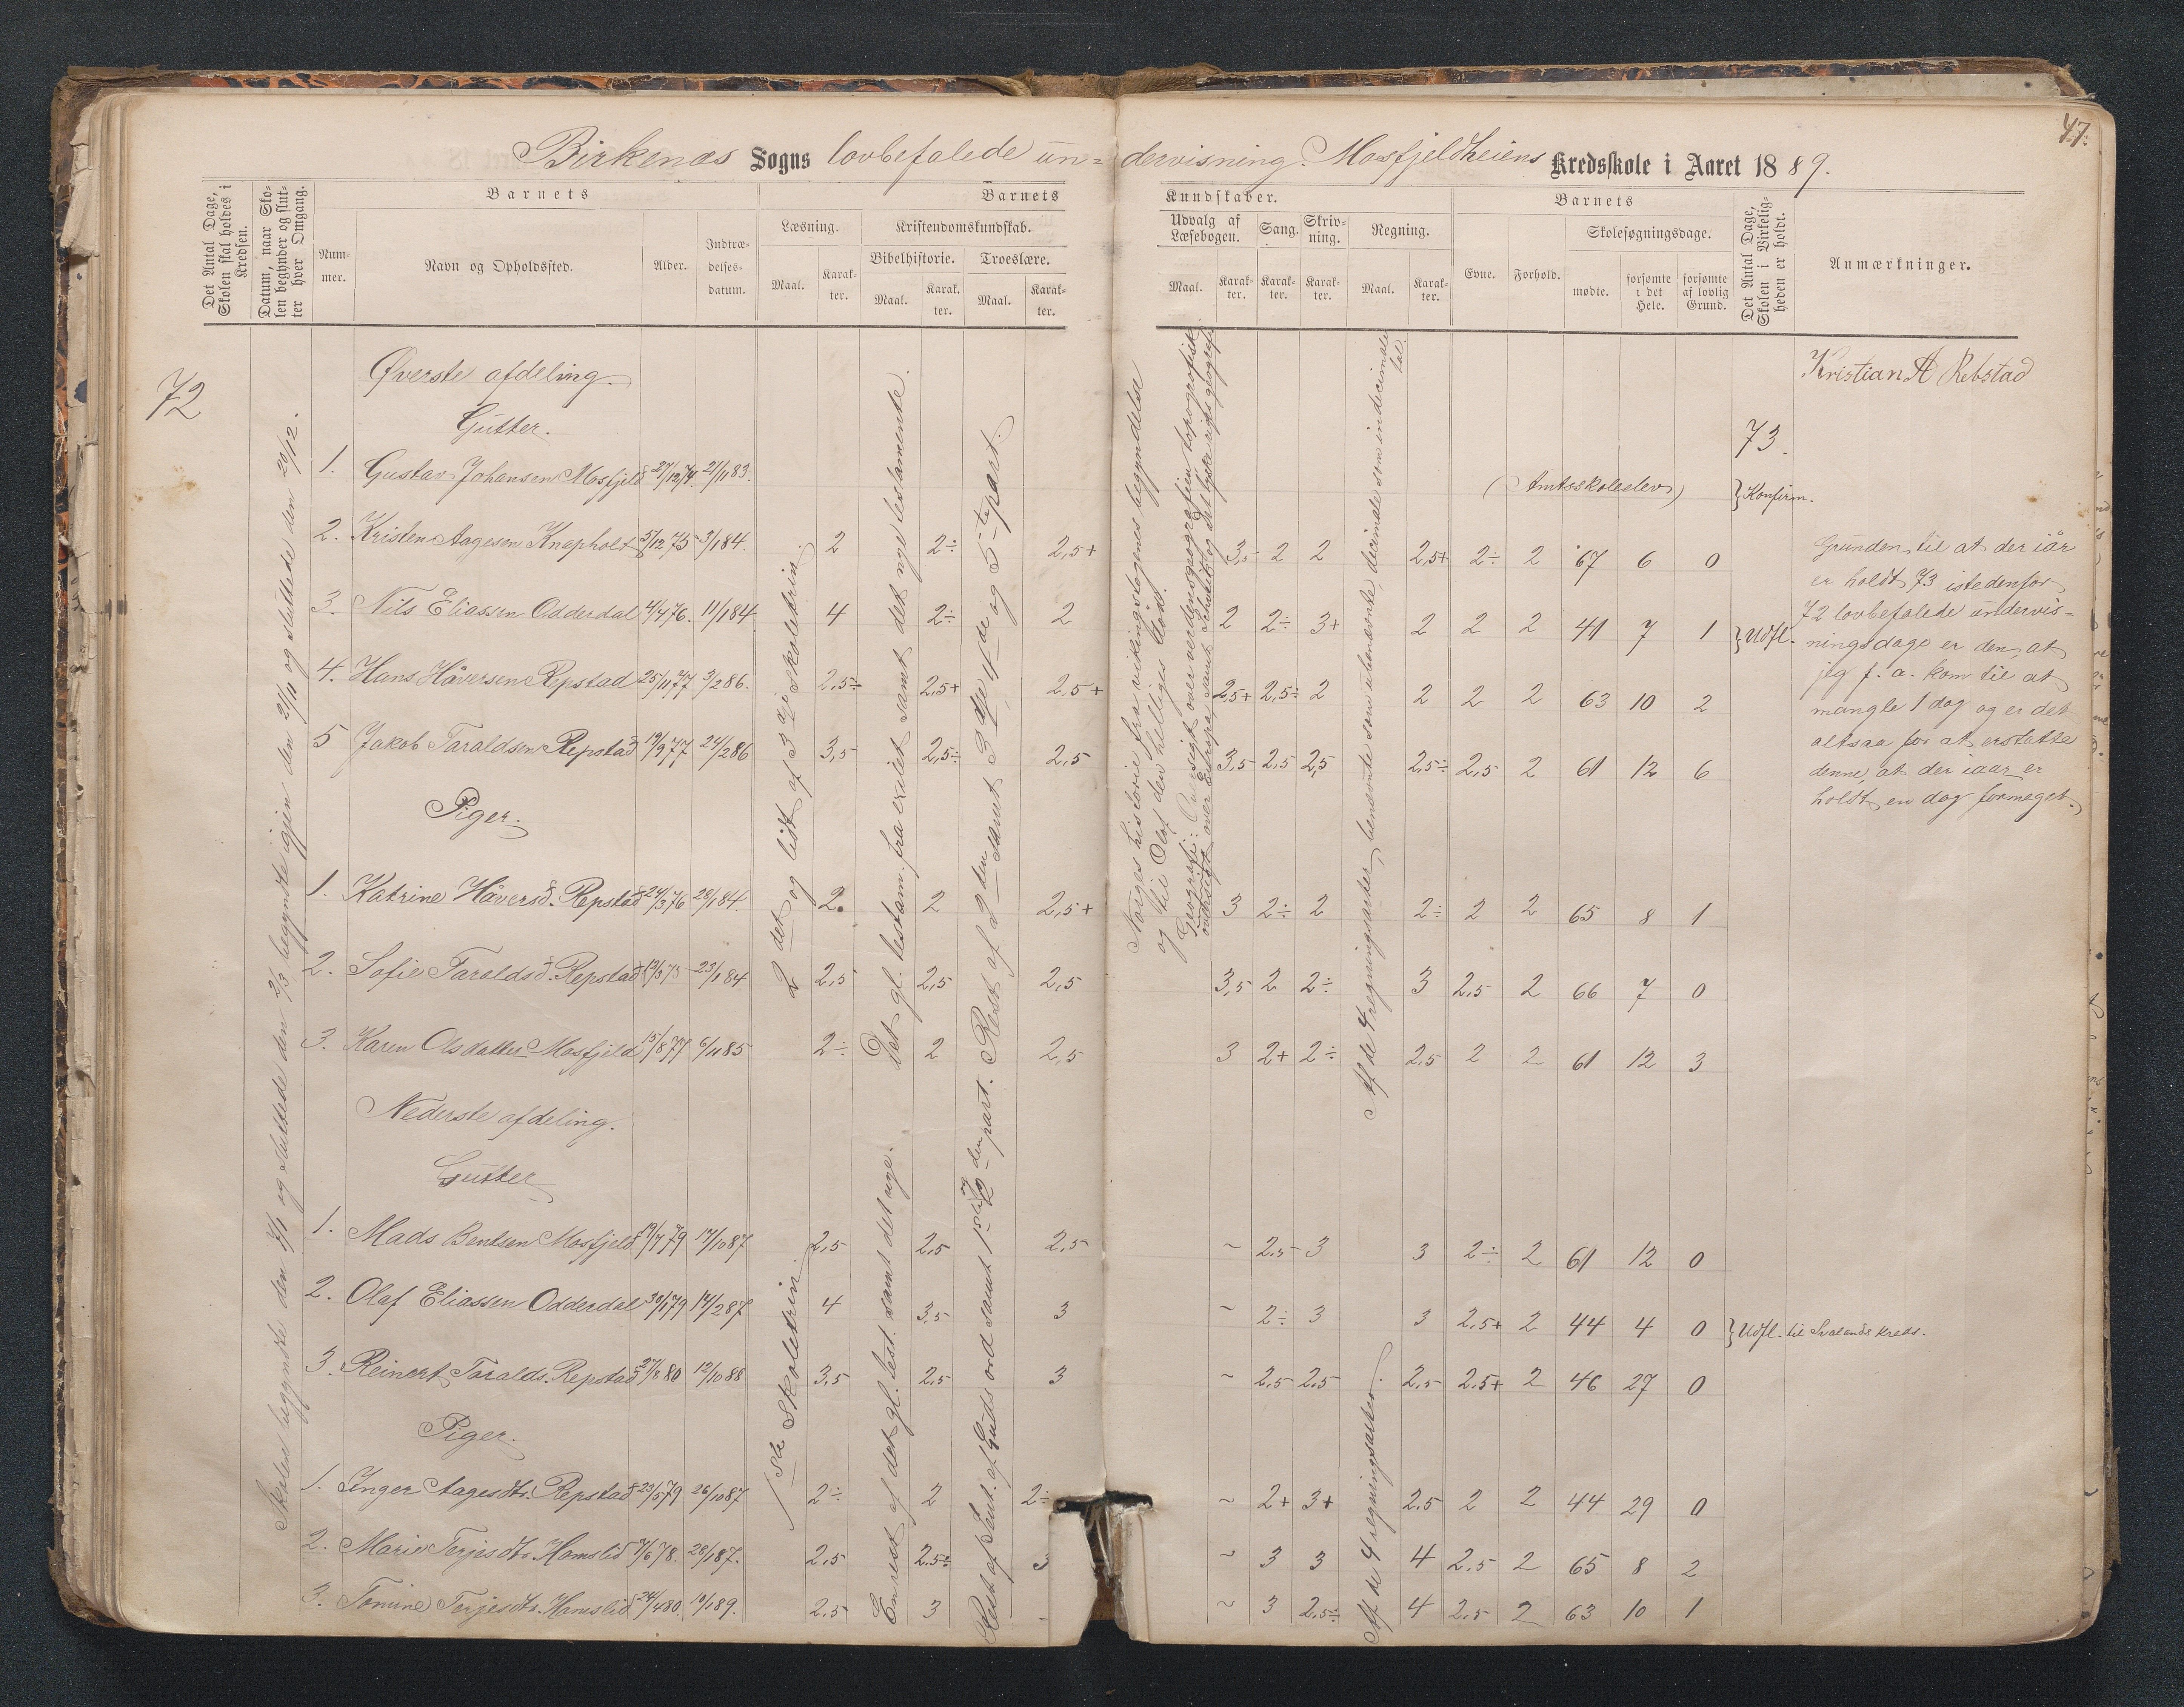 47.
Birkenæs Sogns lovbefalede un= dervisning. Mosfjeldheiens Kredsskole i Aaret 1889.
Det Antal Dage, Skolen skal holdes i Kredsen.
Datum, naar Skolen begynder og slutter hver Omgang.
Barnets
Nummer.
Navn og Opholdssted.
Alder.
Indtrædelses-datum.
Barnets Kundskaber.
Læsning.
Maal.
Karakter.
Kristendomskundskab.
Bibelhistorie.
Maal.
Karakter.
Troeslære.
Maal.
Karakter.
Udvalg af Læsebogen.
Maal.
Karakter.
Sang.
Karakter.
Skrivning.
Karakter.
Regning.
Maal.
Karakter.
Barnets
Evne.
Forhold.
Skolesøgningsdage.
mødte.
forsømte i det Hele.
forsømte af lovlig Grund.
Det Antal Dage, Skolen i Virkeligheden er holdt.
Anmærkninger.
72
Skolen begyndte den 7/1 og sluttede den 2/3 begyndte igjen den 21/11 og sluttede den 20/12.
Øverste afdeling.
Gutter.
Kristian A Rebstad
73.
1. Gustav Johansen Mosfjeld 27/12 74. 27/11 83. (Amtsskoleelev) }Konfirm.
2. Kristen Aagesen Knapholt 5/12 75 3/1 84. 2 2÷ 2,5+ 3,5 2 2 2,5+ 2÷ 2 67 6 0
3. Nils Eliassen Odderdal 4/4 76. 11/1 84. 4 2÷ 2 2 2÷ 3+ 2 2 2 41 7 1 }Udfl.
4. Hans Håversen Repstad 25/11 77 3/2 86. 2,5÷ 2,5+ 2,5+ 2,5+ 2,5÷ 2 2 2 2 63 10 2
5 Jakob Taraldsen Repstad 19/9 77 24/2 86 3,5 2,5÷ 2,5 3,5 2,5 2,5 2,5÷ 2,5 2 61 12 6
Grunden til at der iår
er holdt 73 istedenfor
72 lovbefalede undervis=
ningsdage er den, at
jeg f. a. kom til at
mangle 1 dag og er det
altsaa for at erstatte
denne, at der iaar er
holdt en dag formeget.
Piger.
1. Katrine Håversd. Repstad 24/3 76 28/1 84. 2. 2 2,5+ 3 2÷ 2 2÷ 2 2 65 8 1
2. Sofie Taraldsd. Repstad 23/1 84 2,5 2,5 2,5 3,5 2 2÷ 3 2,5 2 66 7 0
3. Karen Olsdatter Mosfjeld 15/8 77 6/11 85 2÷ 2 2,5 3 2+ 2÷ 2,5 2 2 61 12 3
2det og lidt af 3dje skoletrin.
Det gl. testam. fra exilet samt det nye testamente.
Rest af 2den samt 3dje 4de og 5te part.
Norges historie fra vikingetogenes begyndelse
og til Olaf den helliges død.
Geografi: Oversigt over verdensgeografien topografisk
oversigt over Europa samt og det tyske rigs geografi
Af de 4 regningsarter, benævnte som ubenævnte, decimale som indecimale tal.
Nederste afdeling.
Gutter
1. Mads Bentsen Mosfjeld 19/7 79 17/10 87 2,5 2,5 2,5 ~ 2,5 3 3 2÷ 2 61 12 0
2. Olaf Eliassen Odderdal 30/1 79 14/2 87 4 3,5 3 ~ 2÷ 3 3 2,5+ 2 44 4 0 }Udfl. til Svalands kreds.
3. Reinert Taralds. Repstad 27/8 80 12/10 88 3,5 2,5 3 ~ 2,5 2,5 2,5 2,5+ 2 46 27 0
Piger.
1. Inger Aagesdtr. Repstad 23/5 79 26/10 87 2÷ 2 2÷ ~ 2+ 3+ 2,5 2 2 44 29 0
2. Marie Terjesdtr. Hamslid 7/6 78. 28/1 87. 2,5 2,5÷ 3 ~ 3 3 4 2,5 2 65 8 2
3. Tomine Terjesdtr. Hamslid 24/4 80. 2,5 3 - ~ 3 2,5÷ 4 2,5 2 63 10 1
1ste skoletrin.
En rest af det gl. test. samt det nye.
Rest af Sent. af Guds ord samt 1ste og 2den part.
Af de 4 regningsarter.